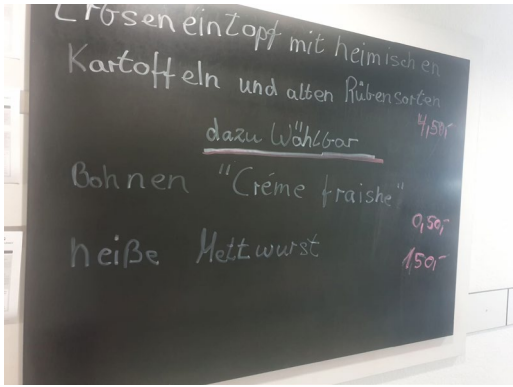 Erbseneintopf mit heimischen
Kartoffeln und alten Rübensorten
4,50,-
dazu Wählbar
Bohnen "Créme fraishe"
0,50,-
heiße Mettwurst
1,50,-